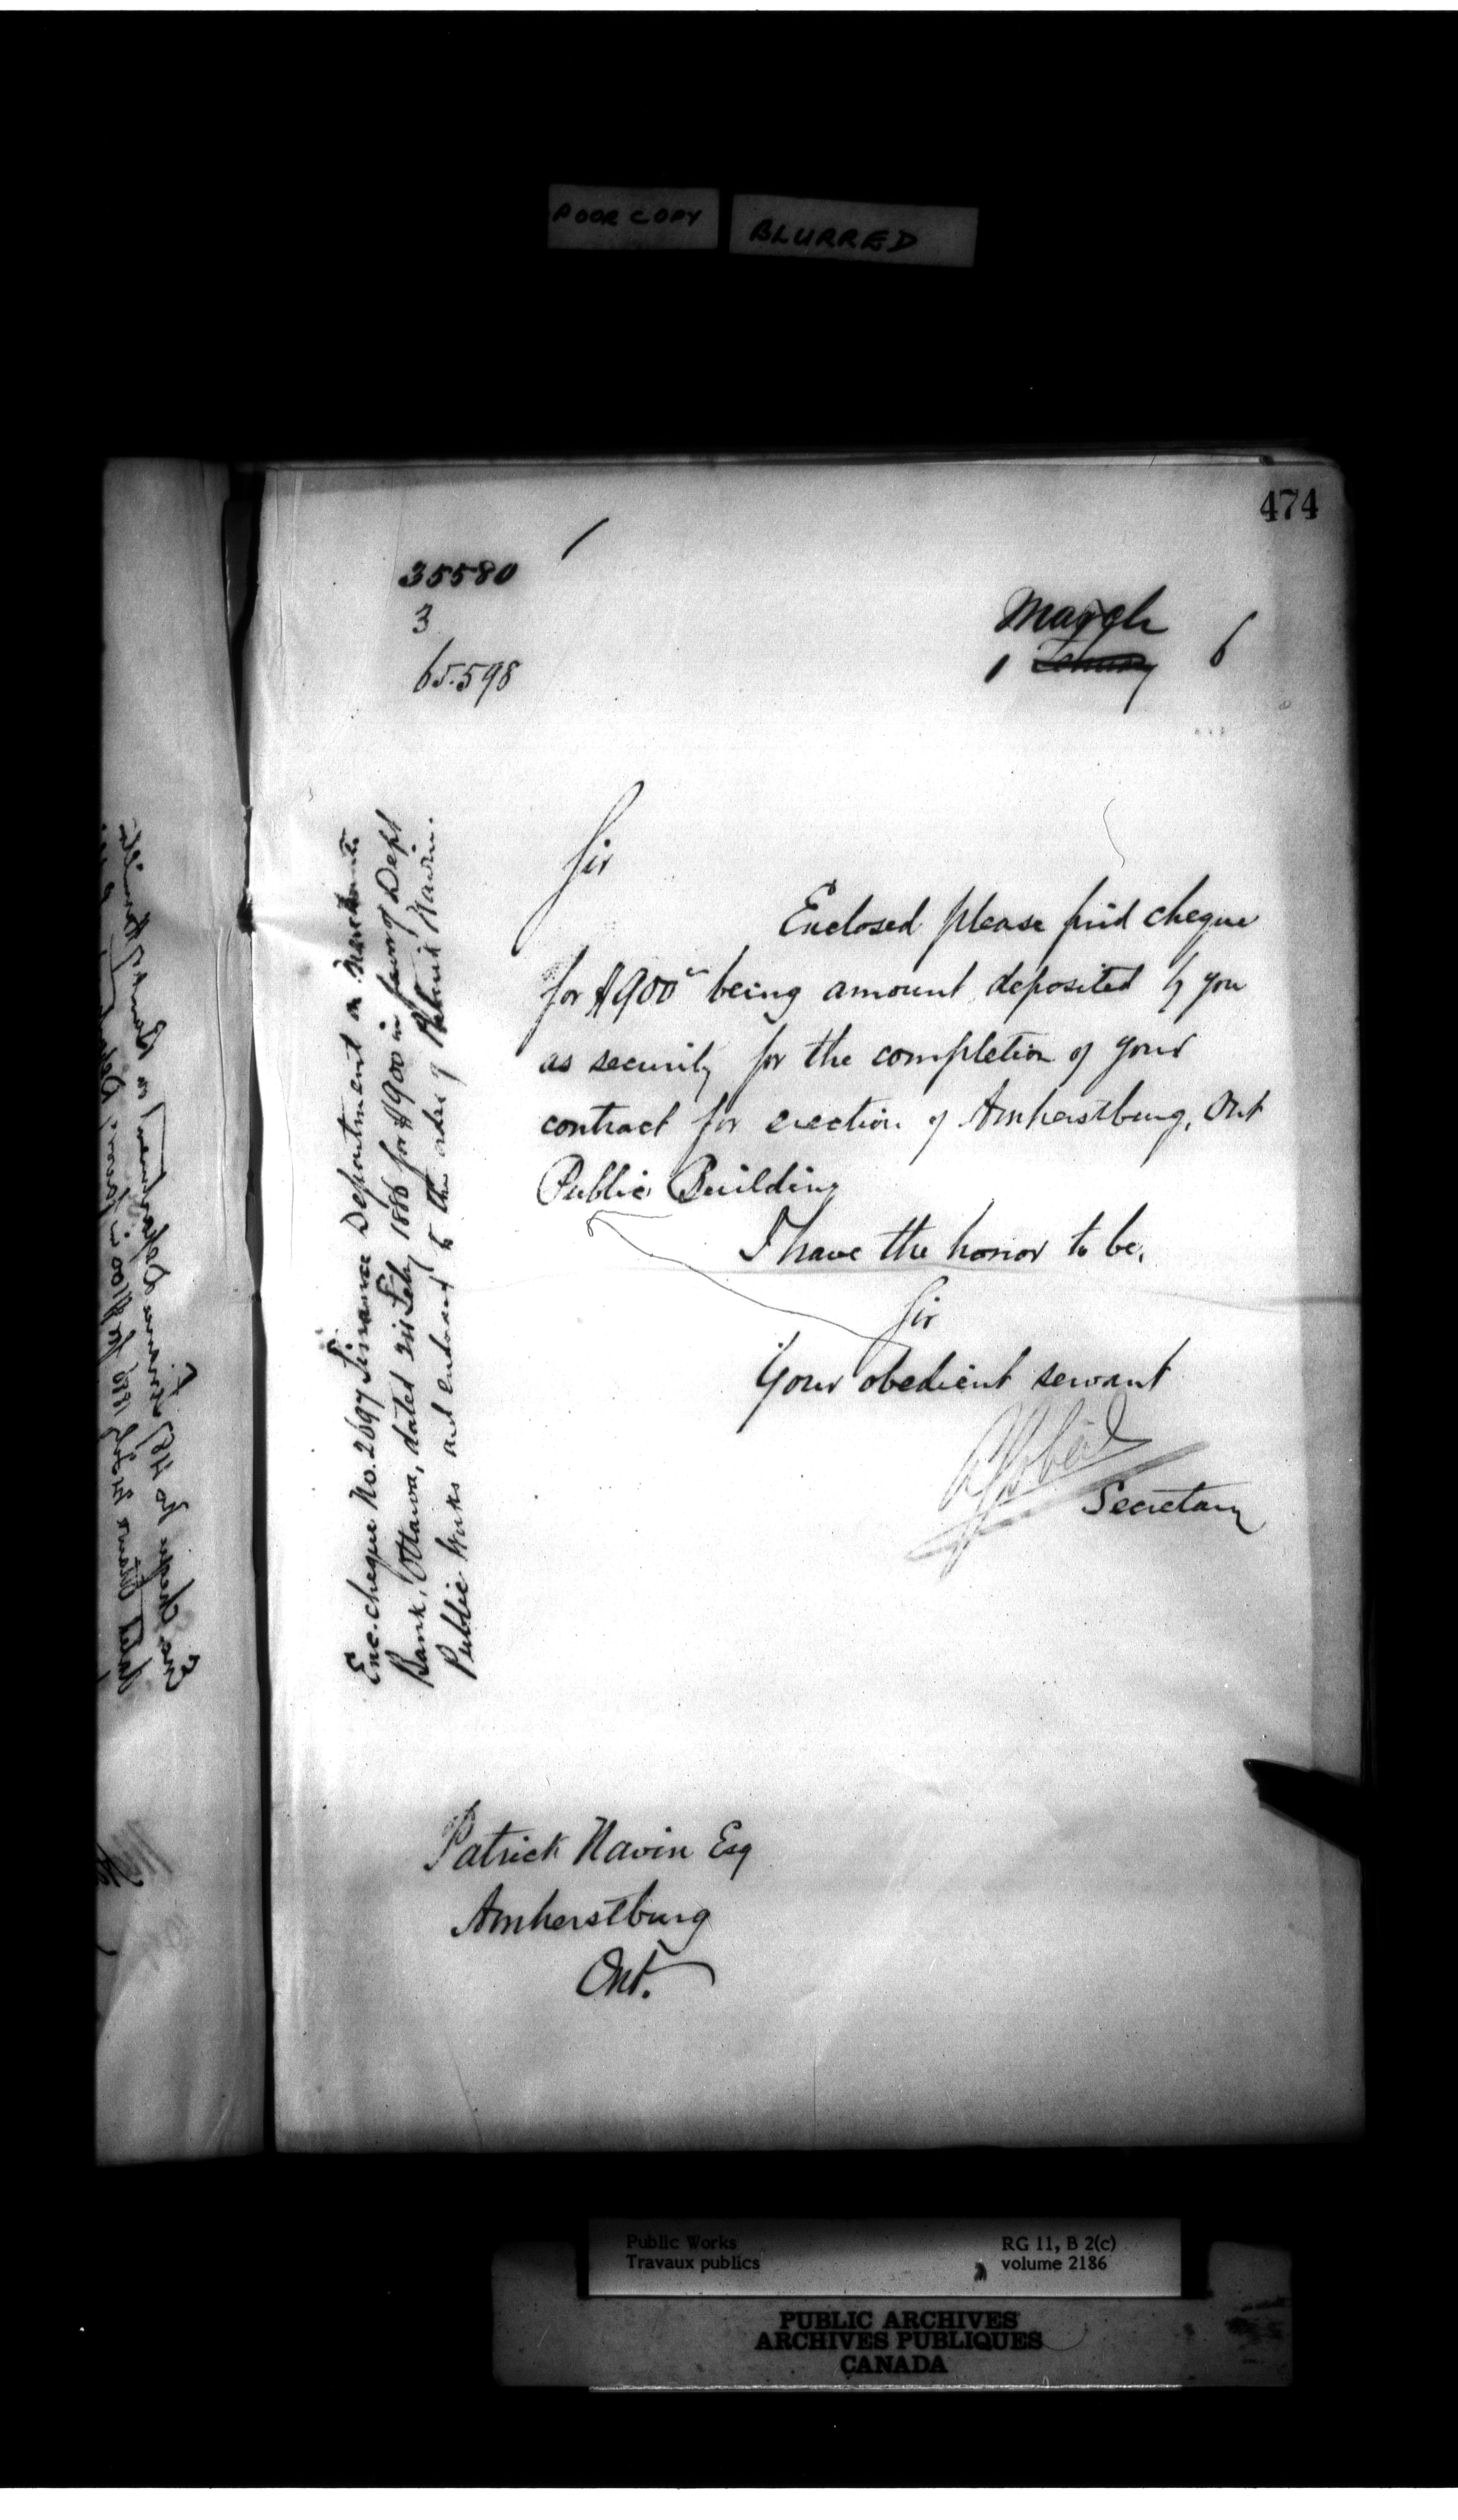 POOR COPY BLURRED
474
35580
3
65.598
March
1 6
Sir
Enclosed please find cheque
for $900 being amount deposited by you
as security for the completion of your
contract for erection of Amherstburg, Ont
Public Building
I have the honor to be,
Sir
Your obedient servant
Secretary
Enc. cheque No. 2697 Finance Department on Merchants
Bank, Ottawa, dated Feby 1886 for $900 in favor of Dept
Public Works and endorsed to the order of Patrick Navin.
Patrick Navin Esq
Amherstburg
Ont.
Public Works
Travaux publics
RG 11, B 2(c)
volume 2186
PUBLIC ARCHIVES
ARCHIVES PUBLIQUES
CANADA